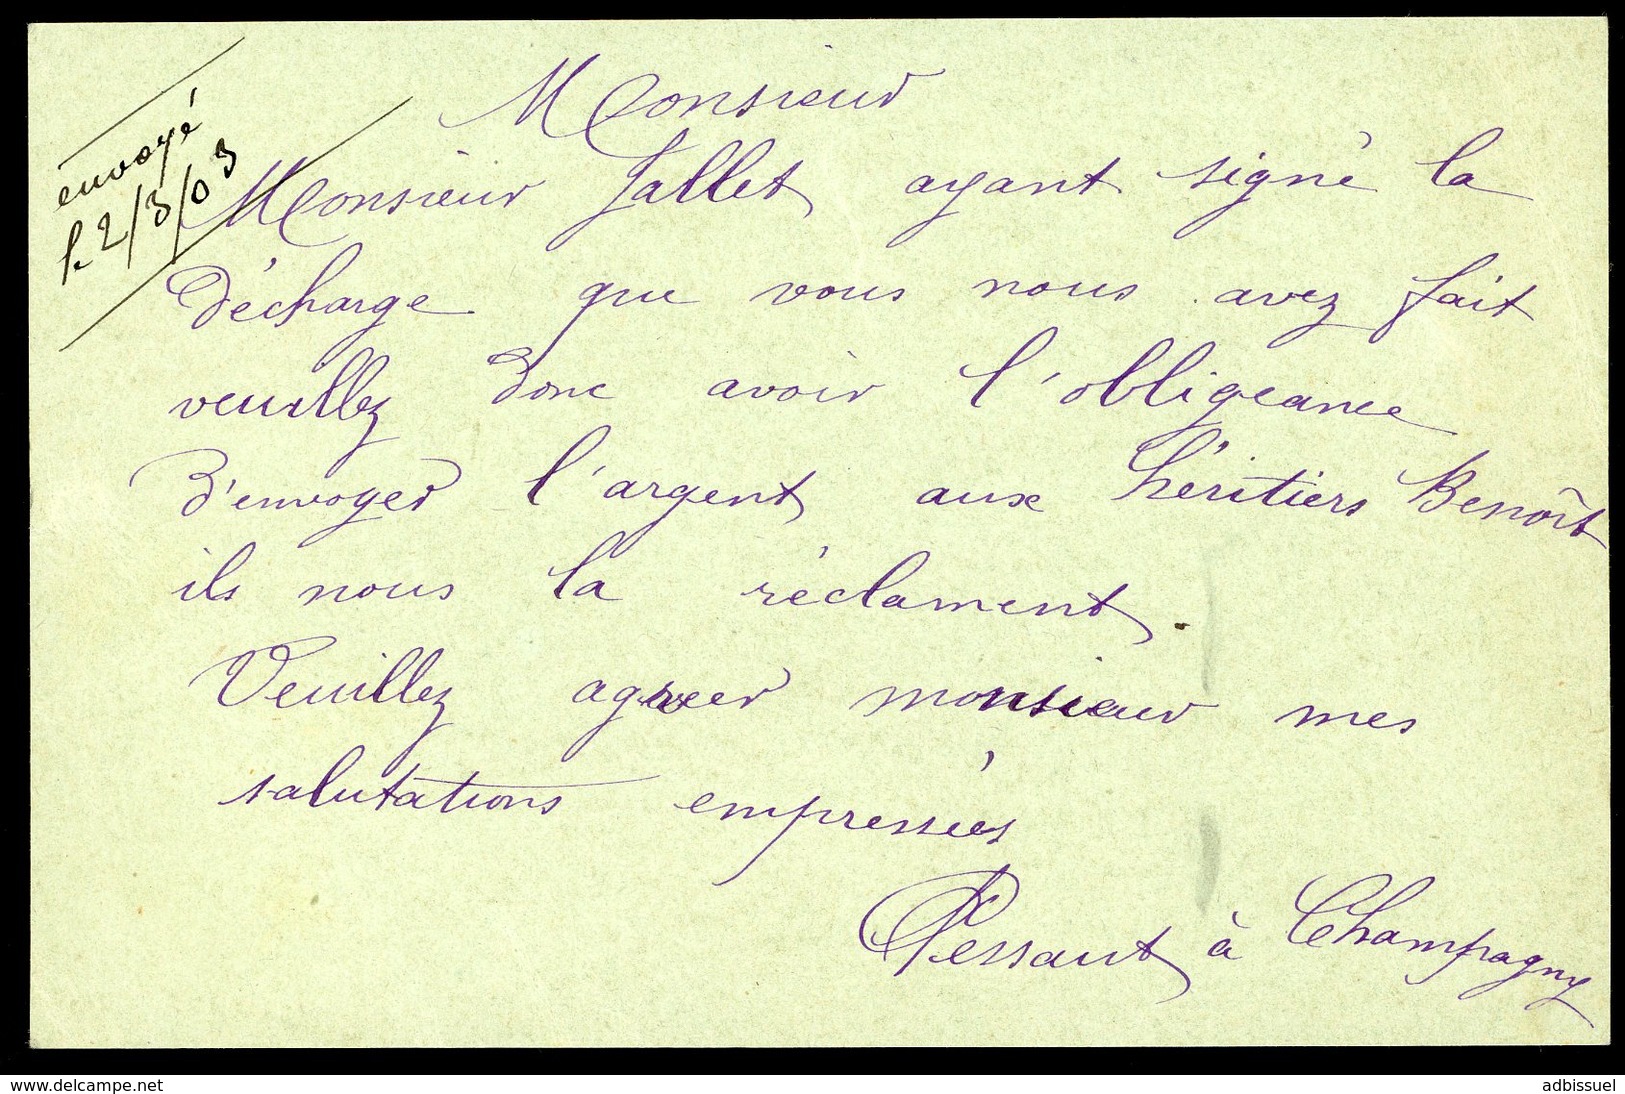 envoyé
l. 2/3/03
Monsieur
Monsieur Jallet ayant signé la
décharge que vous nous avez fait
veuillez donc avoir l'obligeance
d'envoyer l'argent aux héritiers Benoît
ils nous la réclament.
Veuillez agréer monsieur mes
salutations empressées
Pessaut à Champagny
delcampe.net
adbissuel